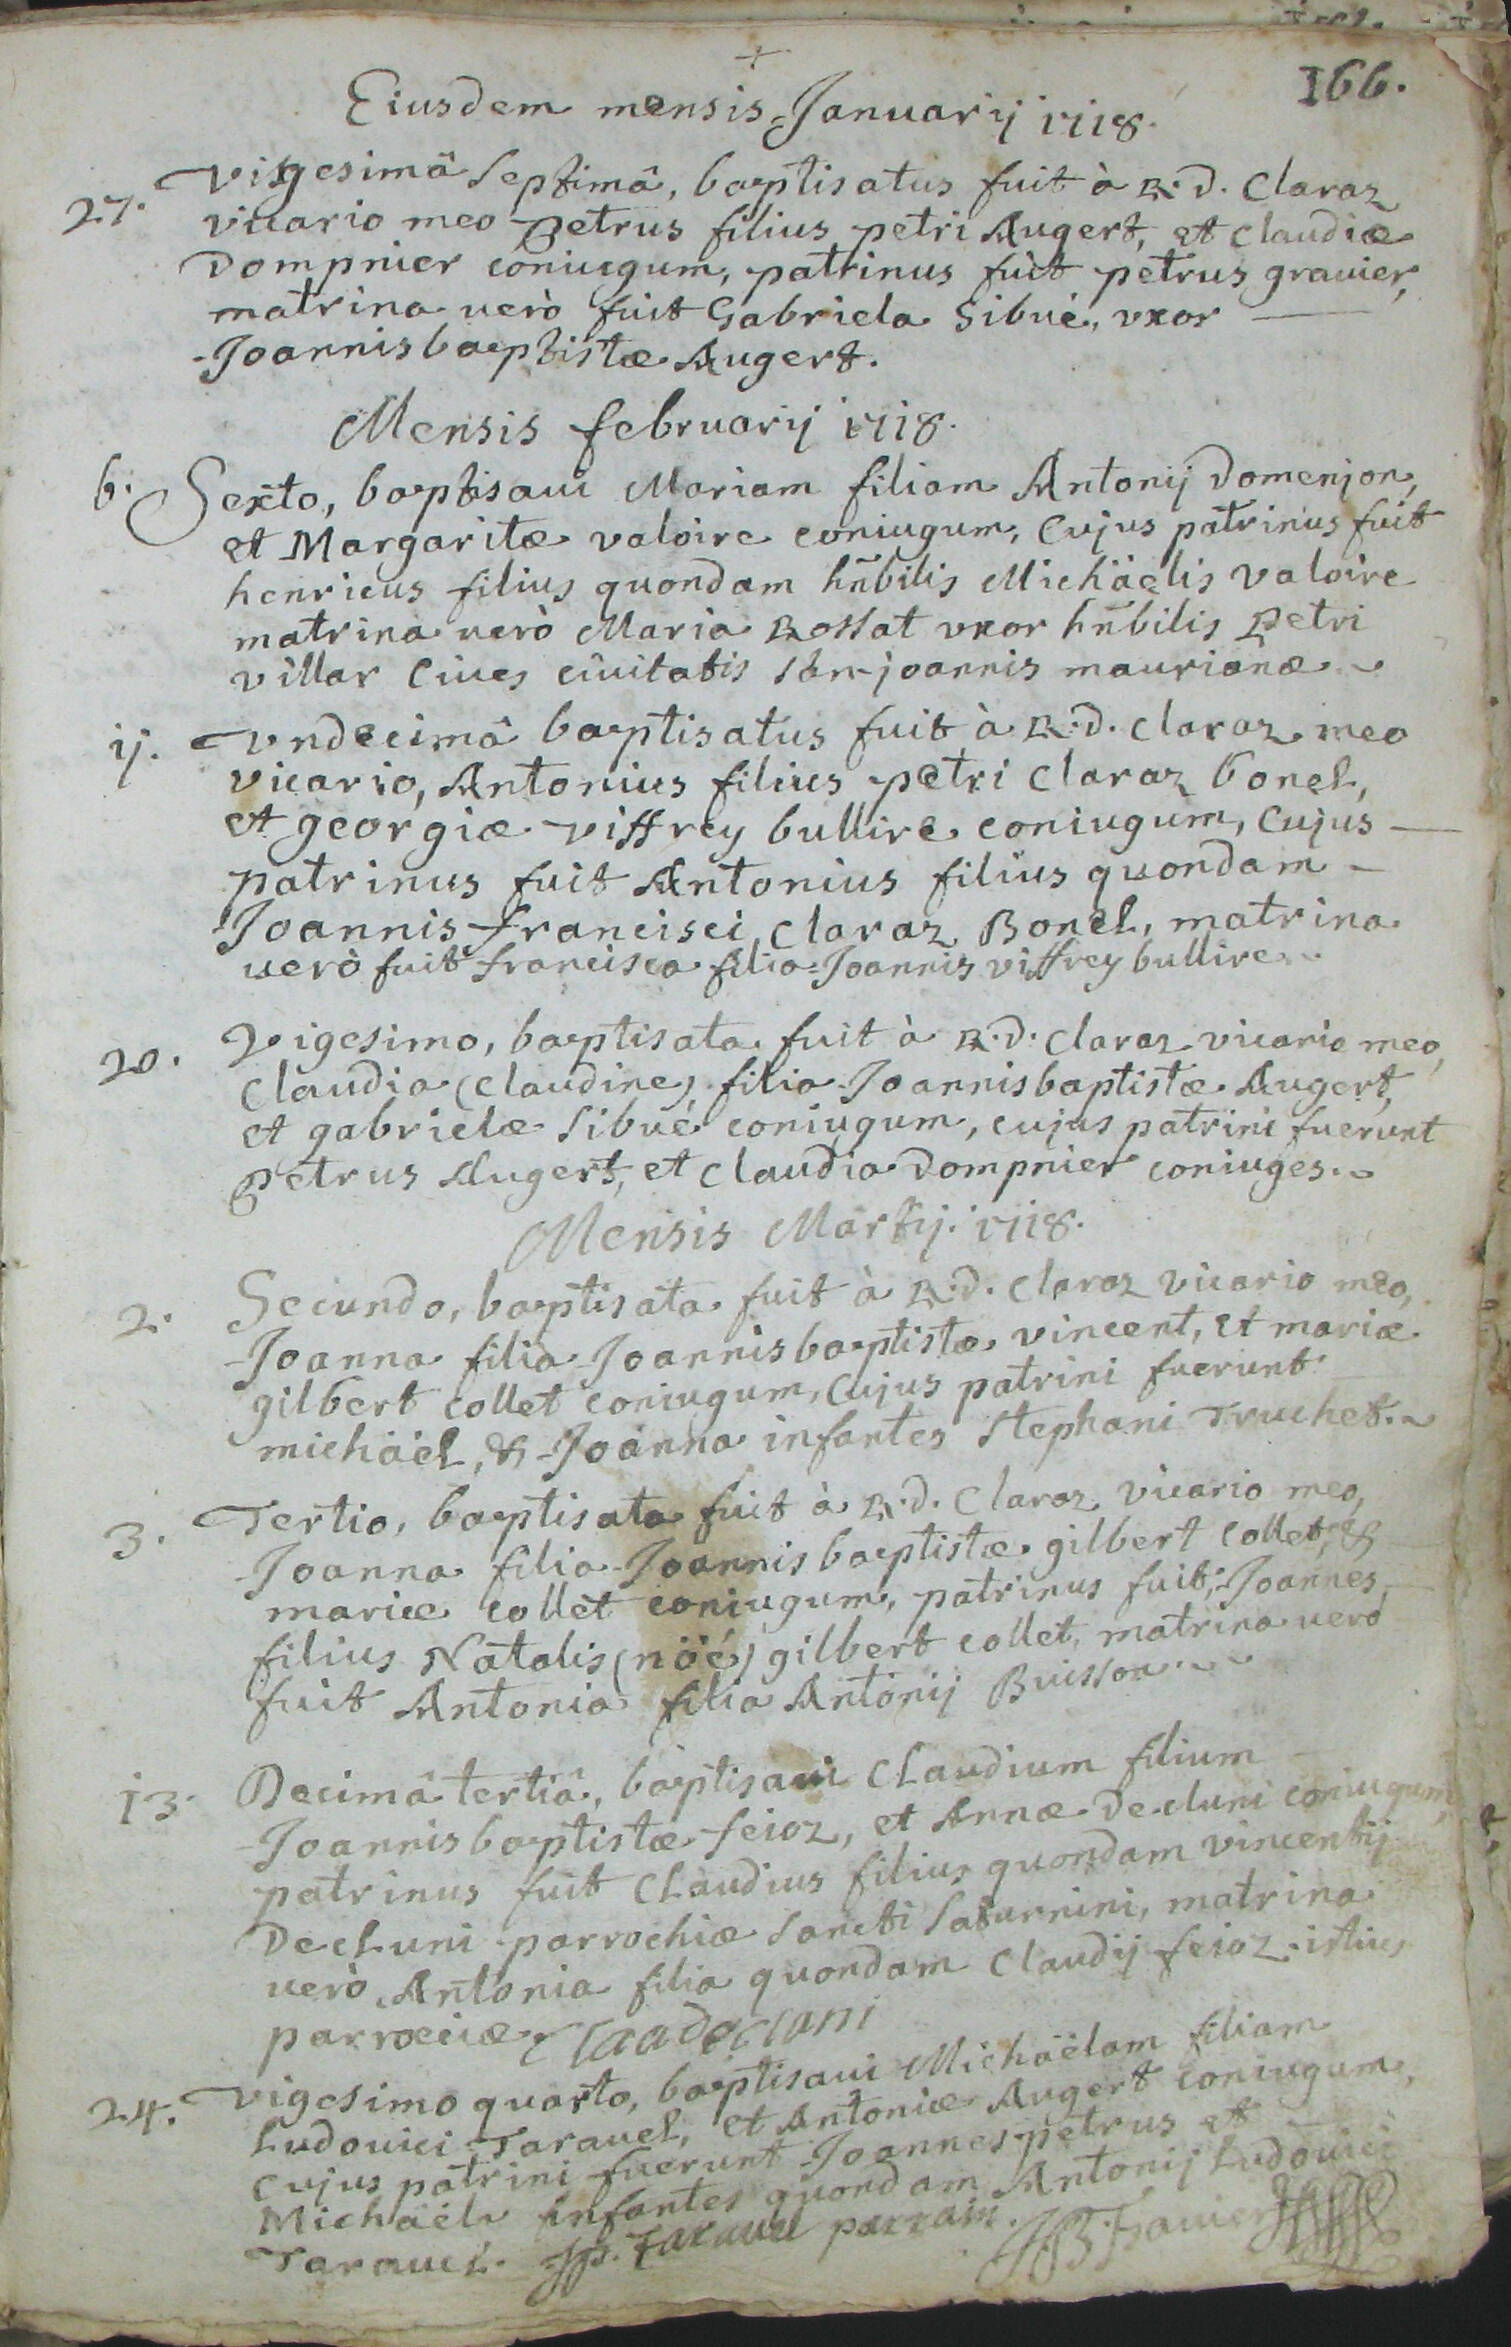 166.
Eiusdem mensis Januarij 1718.
27. Visgesimâ septimâ, baptisatus fuit à R.d. Claraz
vicario meo Petrus filius petri Augert, et Claudiæ
Dompnier coniugum, patrinus fuit petrus gravier,
matrina uerò fuit Gabriela Sibué, vxor
Joannisbaptistæ Augert.
Mensis februarij 1718.
6. Sexto, baptisaui Mariam filiam Antonij Domenjon,
et Margaritæ valoire coniugum, Cujus patrinus fuit
henricus filius quondam hñbilis Michäelis valoire
matrina uerò Maria Rossat vxor hñbilis Petri
villar Ciues ciuitatis joannis maurianæ
ij. Vndecimâ baptisatus fuit à R.d. claraz meo
vicario, Antonius filius petri Claraz bonel,
et georgiæ viffrey bullire coniugum, Cujus
patrinus fuit Antonius filius quondam
Joannis francisci Claraz Bonel, matrina
uerò fuit francisca filia Joannis viffrey bullire.
20. Vigesimo, baptisata fuit à R.d. Claraz vicario meo,
Claudia (Claudine) filia Joannisbaptistæ Augert,
et gabrielæ Sibué coniugum, cujus patrini fuerunt
Petrus Augert, et Claudia Dompnier coniuges.
Mensis Martij. 1718.
2. Secundo, baptisata fuit à R.d. Claraz vicario meo,
Joanna filia Joannisbaptistæ vincent, et mariæ
gilbert collet coniugum, Cujus patrini fuerunt
michäel, & Joanna infantes Stephani Truchet.
3. Tertio, baptisata fuit à R.d. Claraz vicario meo,
Joanna filia Joannisbaptistæ gilbert collet, &
mariæ collet coniugum, patrinus fuit, Joannes,
filius Natalis (nöé) gilbert collet, matrina uerò
fuit Antonia filia Antonij Buisson
13. Decimâ tertiâ, baptisaui Claudium filium
Joannisbaptistæ feioz, et Annæ Decluni coniugum,
patrinus fuit Claudius filius quondam vincentij
Decluni parrochiæ Sancti Saturnini, matrina
uerò Antonia filia quondam Claudij feioz istius
parrociæ
24. Vigesimo quarto, baptisaui Michäelam filiam
Ludouici Tarauel, et Antoniæ Augert coniugum,
Cujus patrini fuerunt Joannespetrus et
Michäela infantes quondam Antonij Ludouici
Tarauel. Jp. Taravel parrain.